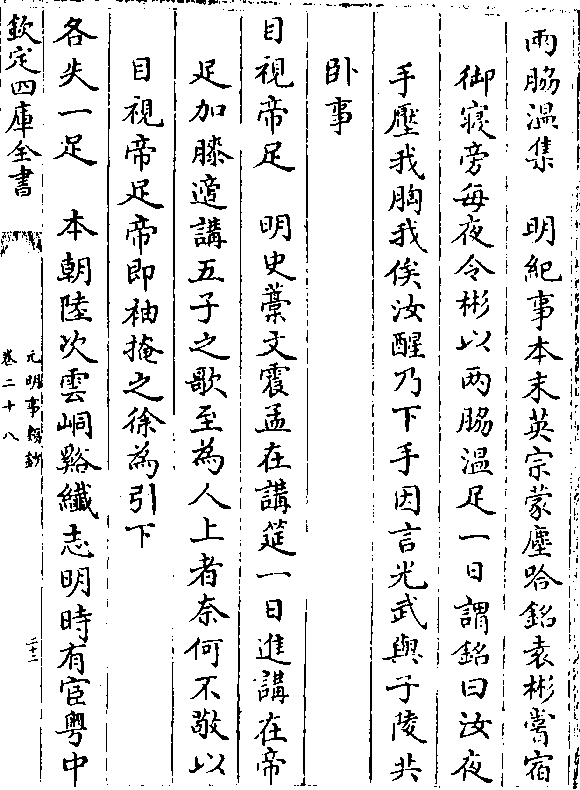 兩脇温集　明紀事本末英宗蒙塵哈銘袁彬嘗宿
御寢旁每夜令彬以兩脇温足一日謂銘曰汝夜
手壓我胸我俟汝醒乃下手因言光武與子陵共
卧事
目視帝足　明史藁文震孟在講筵一日進講在帝
足加膝適講五子之歌至為人上者奈何不敬以
目視帝足帝即袖掩之徐為引下
各失一足　本朝陸次雲峒谿纖志明時有宦粤中
欽定四庫全書
元明事類鈔
卷二十八
二十二